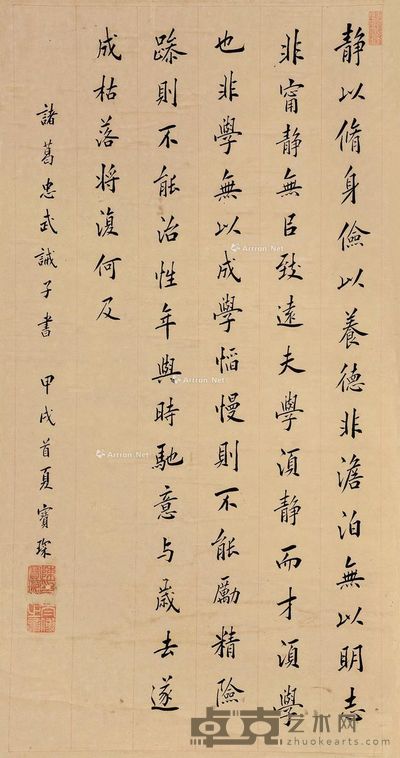 静以脩身儉以養德非澹泊無以明志
非甯静無㠯致遠夫學須静而才須學
也非學無以成學慆慢則不能勵精險
躁則不能治性年與時馳意与歲去遂
成枯落将復何及
諸葛忠武誡子書 甲戌首夏寶琛
Artron.Net
Artron.Net
Artron.Net
Artron.Net
卓克艺术网
zhuokearts.com